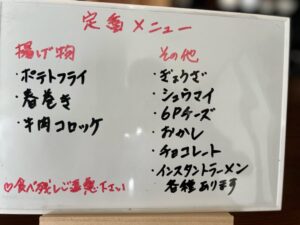 定番メニュー
揚げ物
・ポテトフライ
・春巻き
・牛肉コロッケ
その他
・ぎょうざ
・シュウマイ
・6Pチーズ
・おかし
・チョコレート
・インスタントラーメン
各種あります
♡食べ残しご遠慮下さい